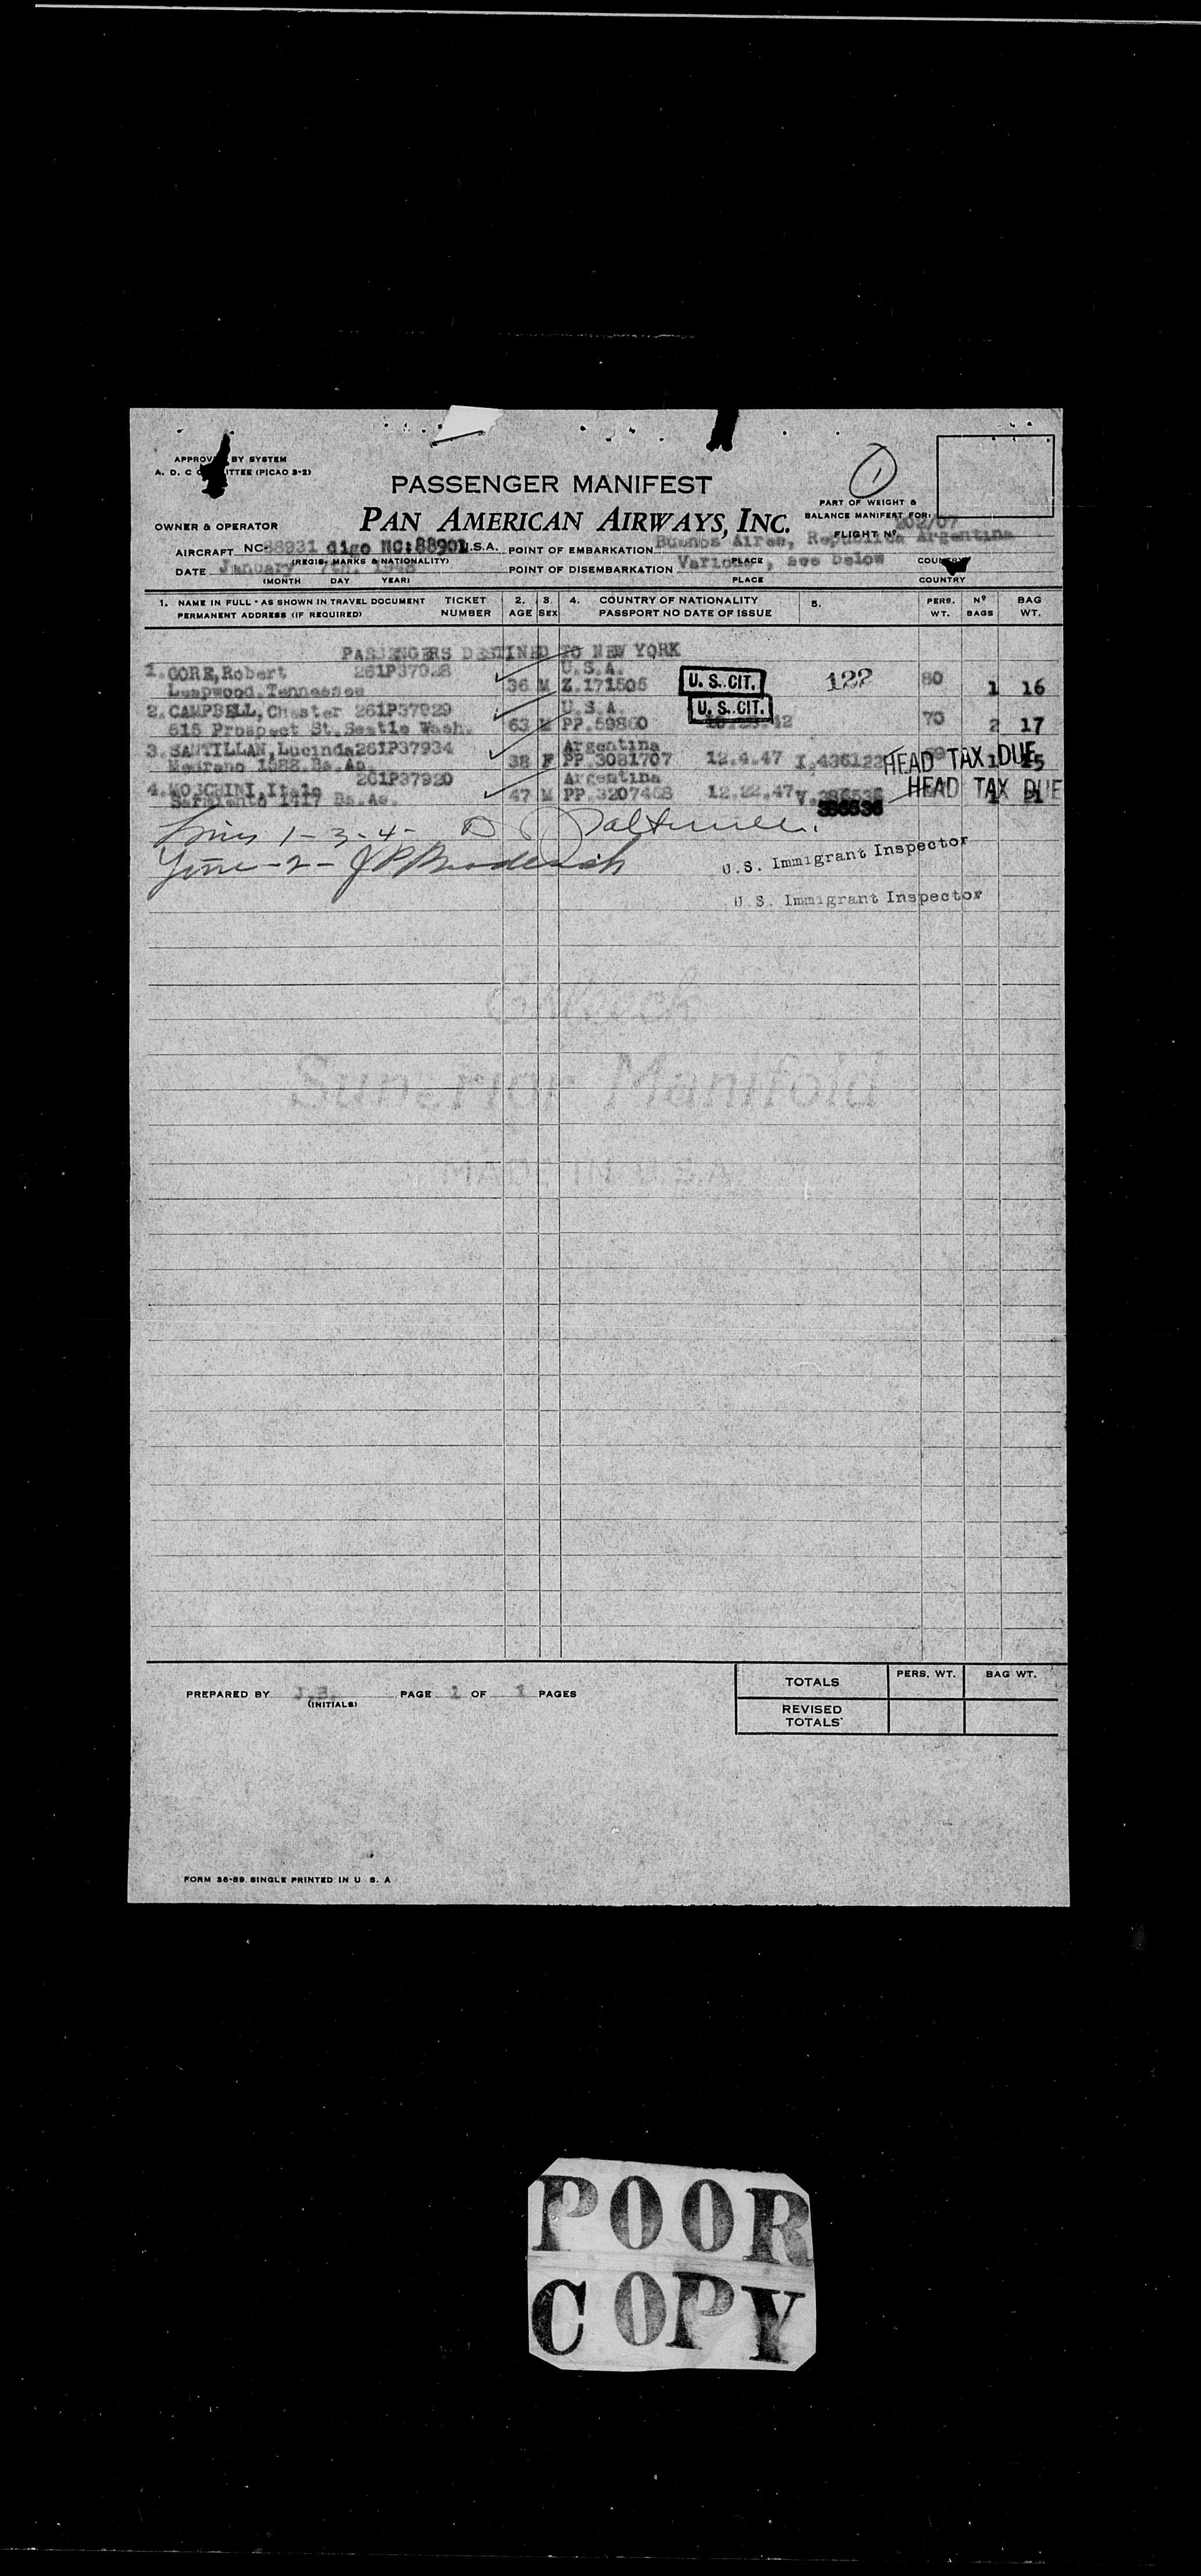 APPROVED BY SYSTEM
A. D. C COMMITTEE (PICAO 3-2)
1
PASSENGER MANIFEST
PART OF WEIGHT &
BALANCE MANIFEST FOR:
OWNER & OPERATOR
PAN AMERICAN AIRWAYS, INC.
FLIGHT Nº 202/07
AIRCRAFT NC-88931 digo NC:88901 U.S.A. POINT OF EMBARKATION Buenos Aires, Republica Argentina
(REGIS. MARKS & NATIONALITY) PLACE COUNTRY
DATE January 7th. 1948 POINT OF DISEMBARKATION Various, see below
(MONTH DAY YEAR) PLACE COUNTRY
1. NAME IN FULL - AS SHOWN IN TRAVEL DOCUMENT TICKET 2. 3. 4. COUNTRY OF NATIONALITY 5. PERS. Nº BAG
PERMANENT ADDRESS (IF REQUIRED) NUMBER AGE SEX PASSPORT NO DATE OF ISSUE WT. BAGS WT.
PASSENGERS DESTINED TO NEW YORK
1. GORE, Robert 261P37928 U.S.A.
Leapwood. Tennessee 36 M Z.171505 U. S. CIT. 122 80 1 16
2. CAMPBELL, Chester 261P37929 U.S.A. U. S. CIT.
615 Prospect St. Seatle Wash. 63 M PP.59860 70 2 17
3. SANTILLAN, Lucinda 261P37934 Argentina
Medrano 1588. Bs.As. 38 F PP.3081707 12.4.47 I.436122 HEAD TAX DUE 1 15
4. MOSCHINI, Italo 261P37920 Argentina
Sarmiento 1417 Bs.As. 47 M PP.3207468 12.22.47 V.386536 HEAD TAX DUE
386536
Lines 1-3-4-
Line -2- J P Broderick
U.S. Immigrant Inspector
U.S. Immigrant Inspector
Superior Manifold
MADE IN U.S.A.
TOTALS PERS. WT. BAG WT.
PREPARED BY J.B. PAGE 1 OF 1 PAGES
(INITIALS)
REVISED
TOTALS
FORM 36-89 SINGLE PRINTED IN U S. A
POOR
COPY